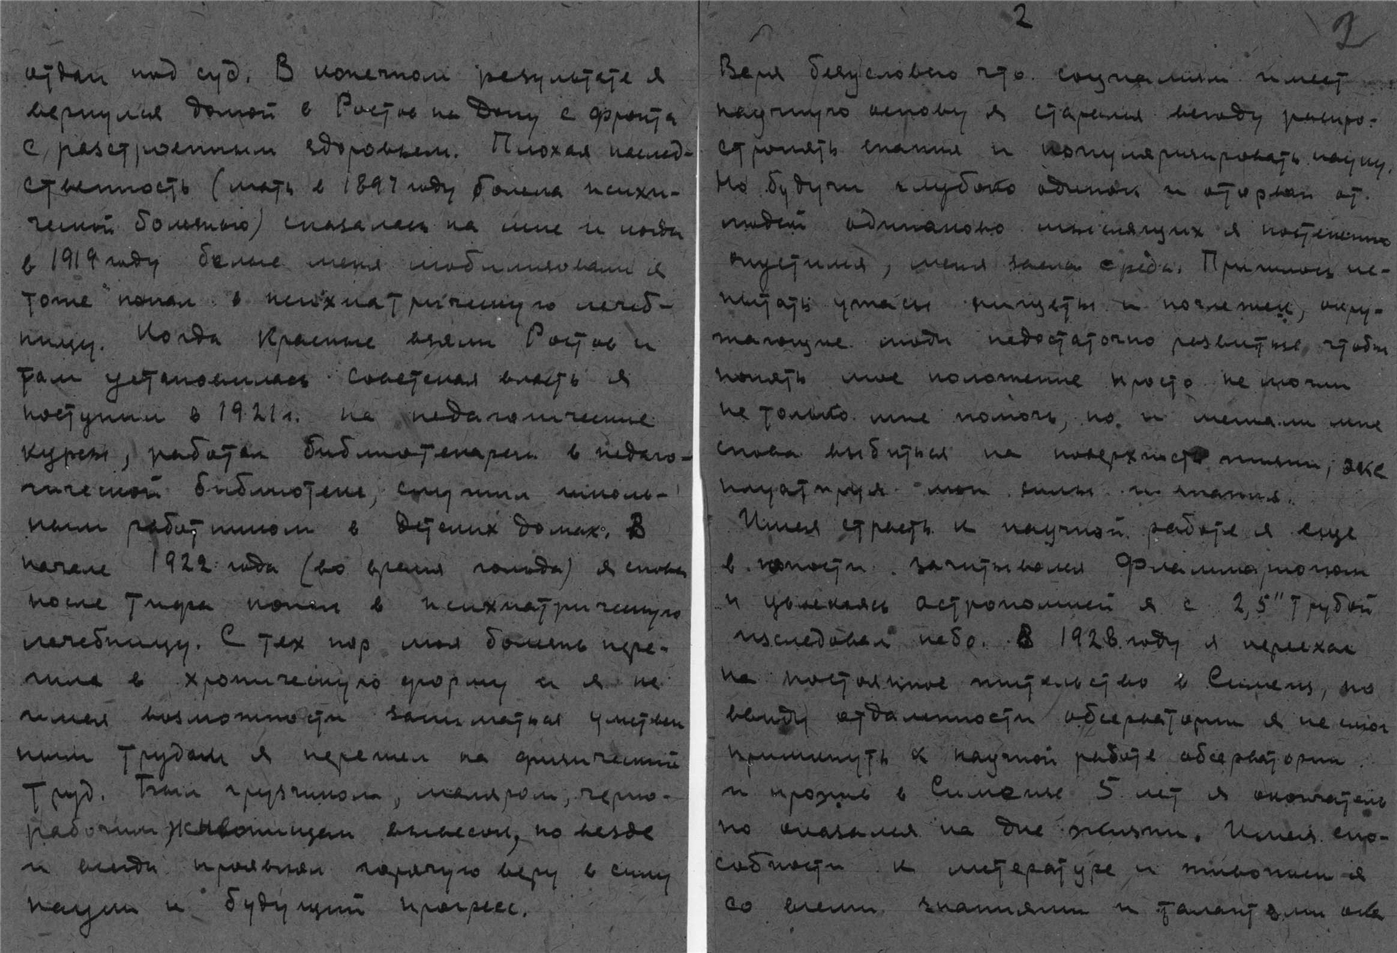 отдан под суд. В конечном результате я
вернулся домой в Ростов на Дону с фронта
с разстроенным здоровьем. Плохая наслед-
ственность (мать в 1897 году болела психи-
ческой болезнью) сказалась на мне и когда
в 1919 году белые меня мобилизовали я
тоже попал в психиатрическую лечеб-
ницу. Когда красные взяли Ростов и
там установилась советская власть я
поступил в 1921 г. на педагогические
курсы, работал библиотекарем в педаго-
гической библиотеке, служил школь-
ным работником в детских домах. В
начале 1922 года (во время голода) я снова
после тифа попал в психиатрическую
лечебницу. С тех пор моя болезнь пере-
шла в хроническую форму и я не
имея возможности заниматься умствен
ным трудом я перешел на физический
труд. Был грузчиком, маляром, черно-
рабочим, живописцем вывесок, но везде
и всегда проявлял горячую веру в силу
науки и будущий прогресс.
2
2
Веря безусловно что социализм имеет
научную основу я старался всюду распро-
странять знания и популяризировать науку.
Но будучи глубоко одинок и оторван от
людей одинаково мыслящих я постепенно
опустился, меня заела среда. Пришлось ис-
пытать ужасы нищеты и ночлежек, окру-
жающие люди недостаточно развитые чтобы
понять мое положение просто не могли
не только мне помочь, но и мешали мне
снова выбиться на поверхность жизни, экс
плуатируя мои силы и знания.
Имея страсть к научной работе я еще
в юности зачитывался Фламмарионом
и увлекаясь астрономией я с 2,5" трубой
исследовал небо. В 1928 году я переехал
на постоянное жительство в Симеиз, но
ввиду отдаленности обсерватории я не мог
примкнуть к научной работе обсерватории
и прожив в Симеизе 5 лет я окончатель
но оказался на дне жизни. Имея спо-
собности к литературе и живописи я
со всеми знаниями и талантами ока